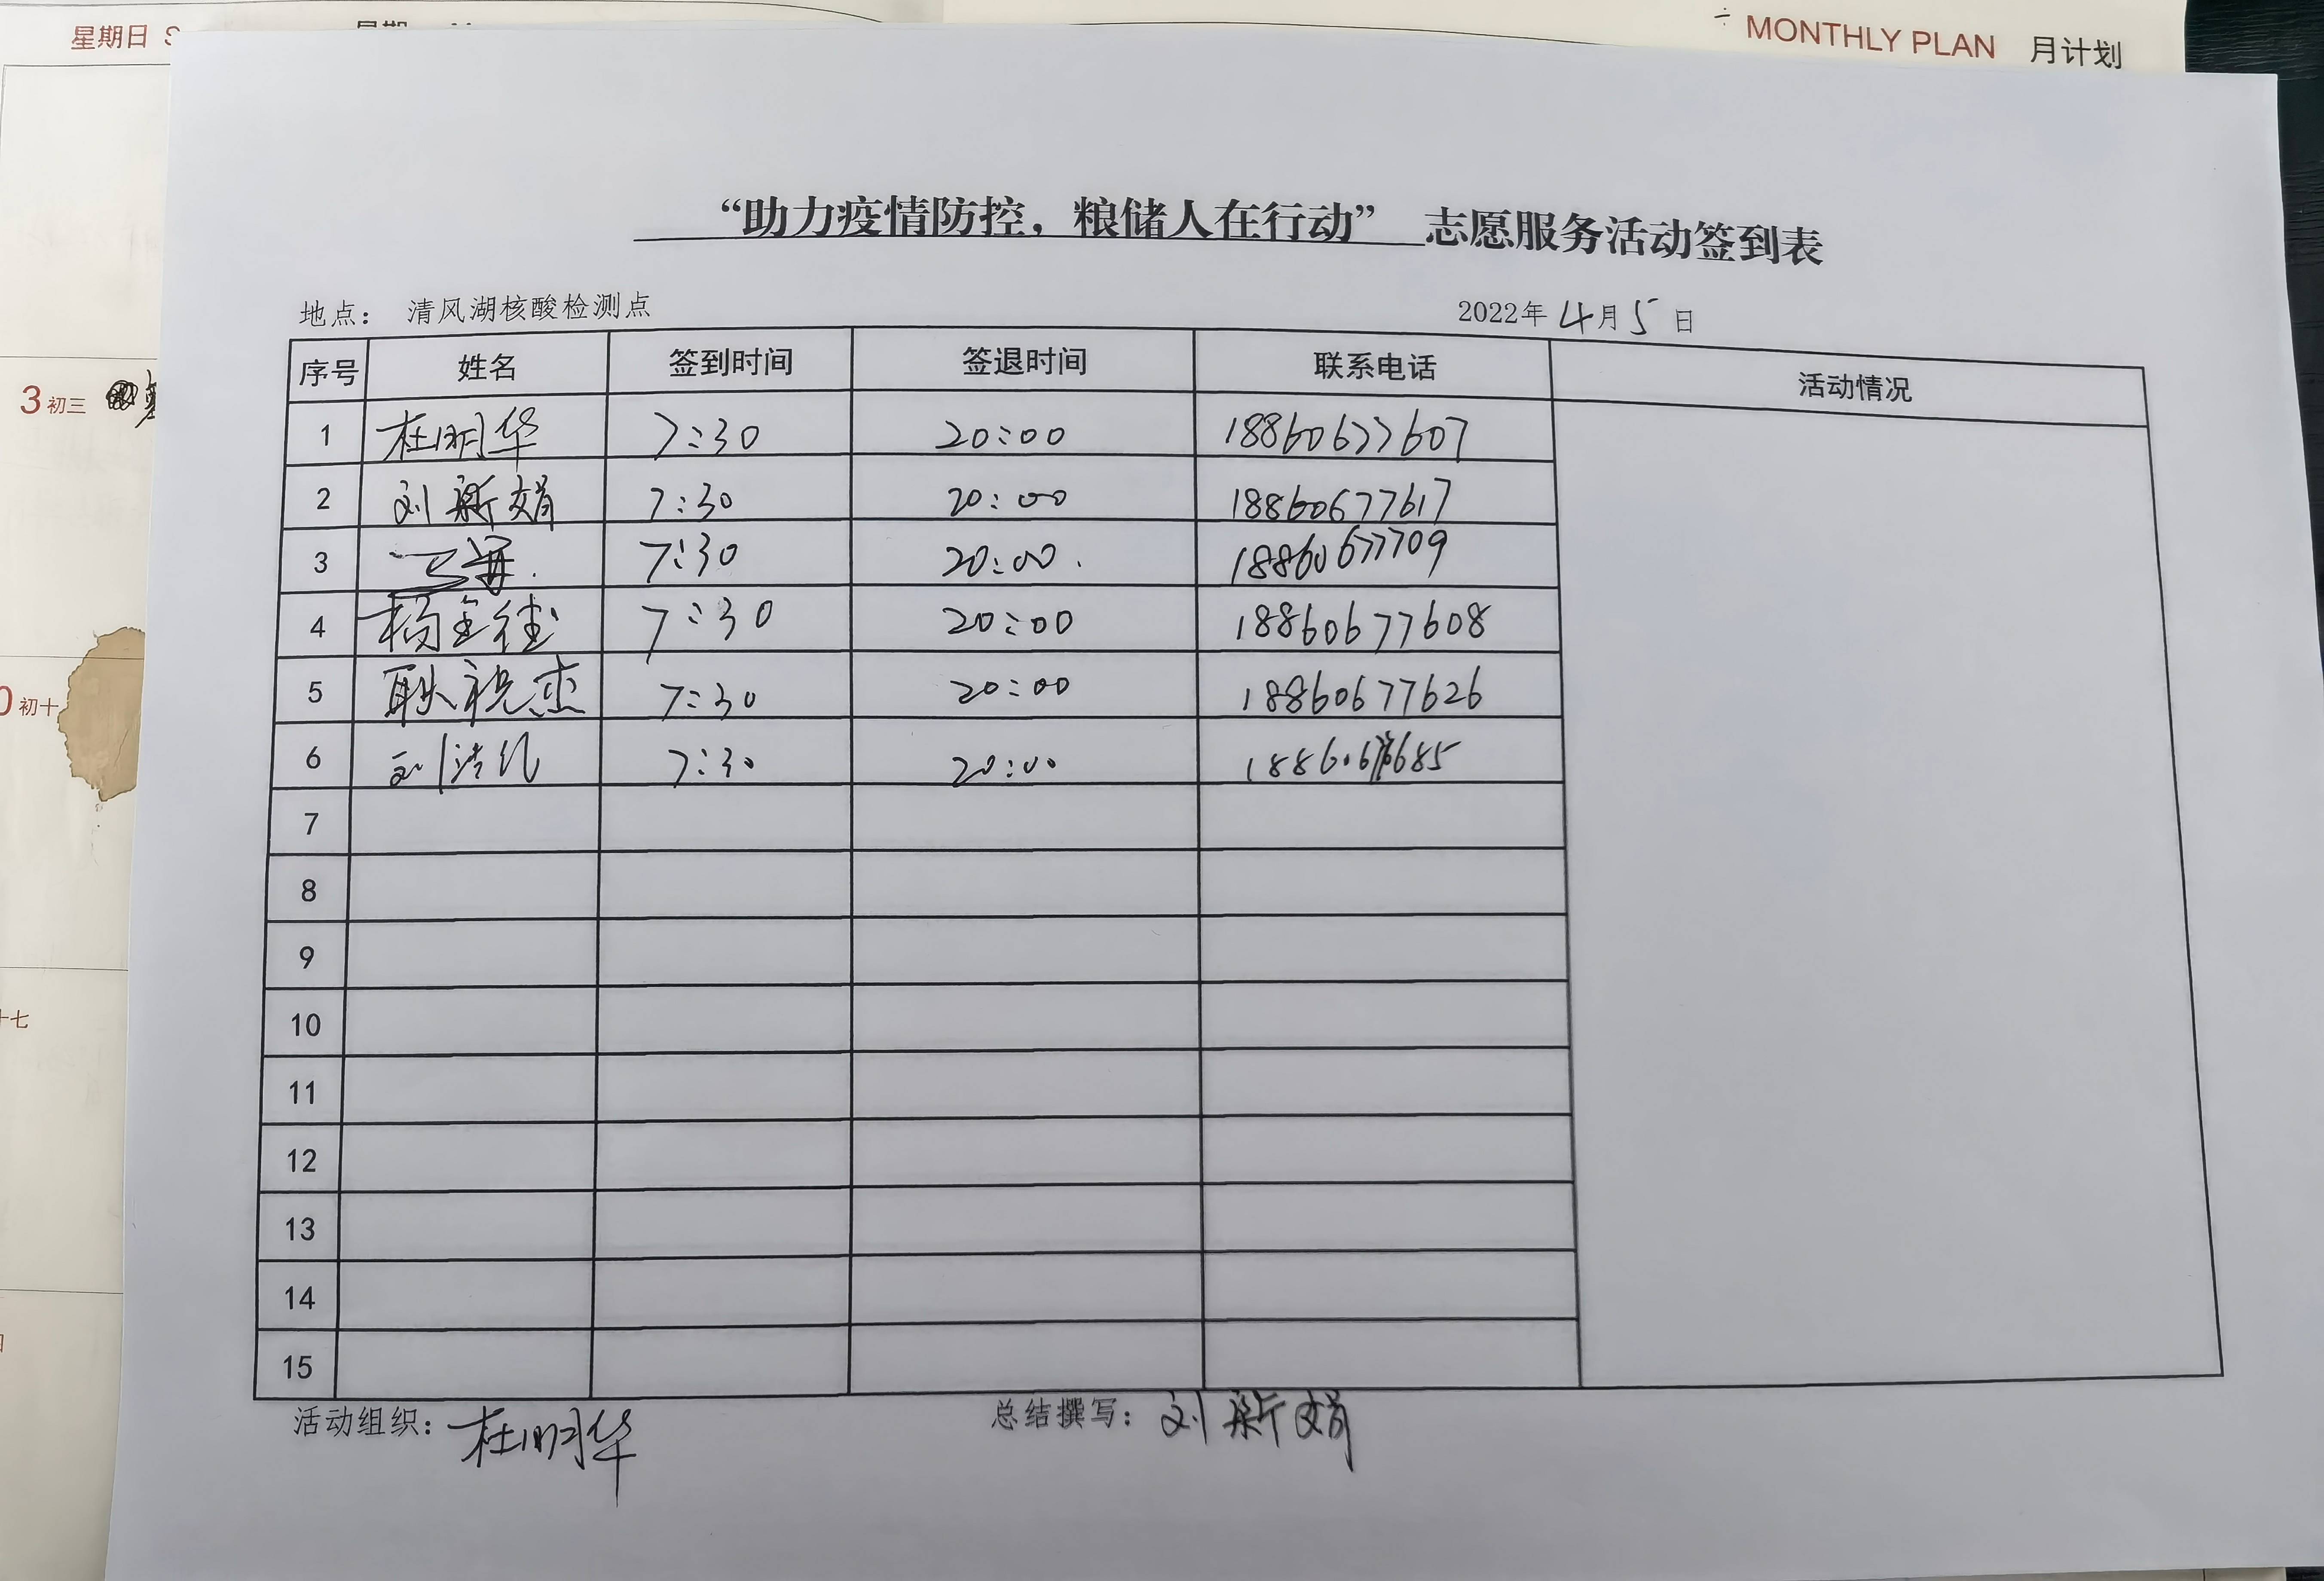 星期日 S
MONTHLY PLAN 月计划
“助力疫情防控，粮储人在行动” 志愿服务活动签到表
地点： 清风湖核酸检测点 2022年 4月 5 日
序号 姓名 签到时间 签退时间 联系电话 活动情况
3 初三
1 杜明华 7:30 20:00 18860677607
2 刘新娟 7:30 20:00 18860677617
3 7:30 20:00. 18860677709
4 杨金德 7:30 20:00 18860677608
0 初十
5 耿祝杰 7:30 20:00 18860677626
6 刘洪凡 7:30 20:00
7
8
9
十七
10
11
12
13
14
15
活动组织：杜明华 总结撰写：刘新娟